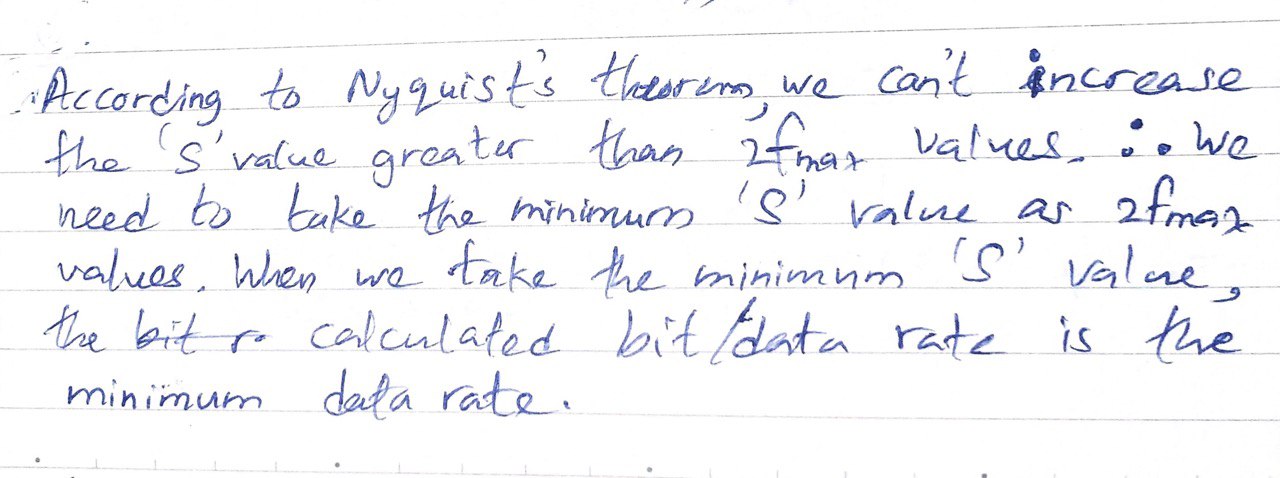 According to Nyquist's theorem, we can't increase
the 'S' value greater than 2fmax values. ∴ We
need to take the minimum 'S' value as 2fmax
values. When we take the minimum 'S' value,
the bit r calculated bit/data rate is the
minimum data rate.